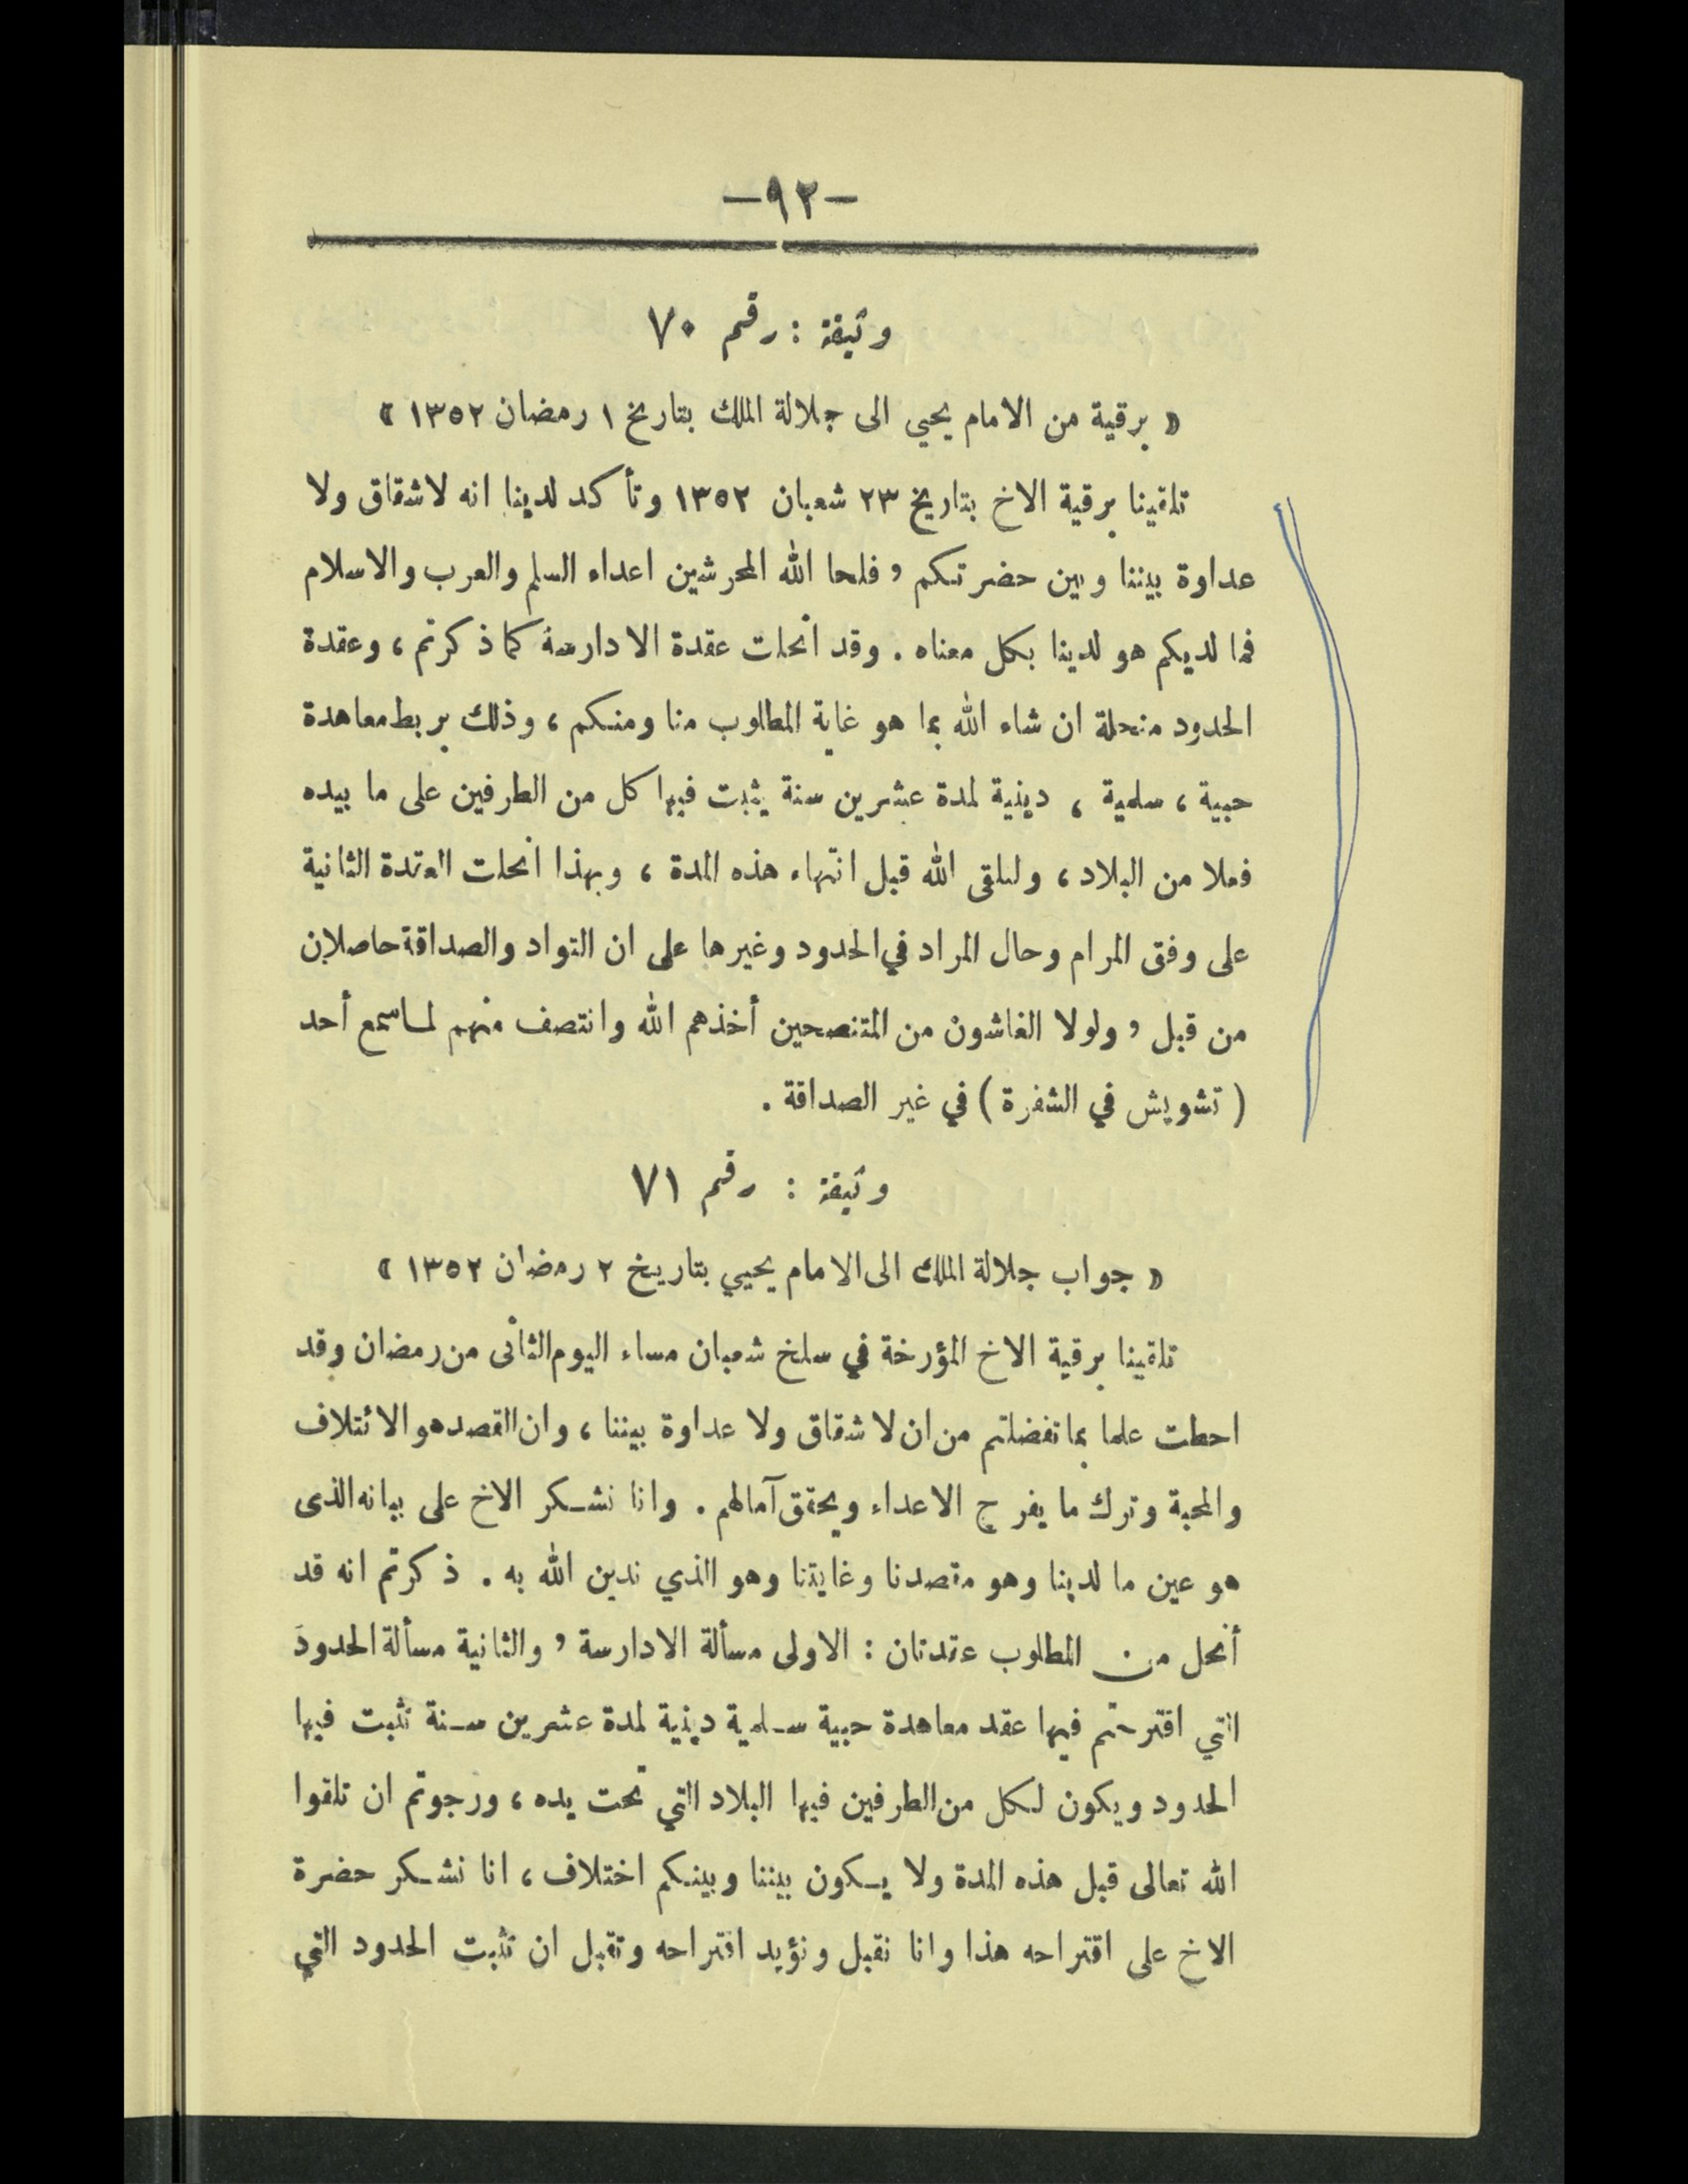 -٩٢-
وثيقة : رقم ٧٠
« برقية من الامام يحيى الى جلالة الملك بتاريخ ١ رمضان ١٣٥٢ »
تلقينا برقية الاخ بتاريخ ٢٣ شعبان ١٣٥٢ وتأكد لدينا انه لاشقاق ولا
عداوة بيننا وبين حضرتكم ، فلحا الله المحرشين اعداء السلم والعرب والاسلام
فما لديكم هو لدينا بكل معناه . وقد انحلت عقدة الادارسة كما ذكرتم ، وعقدة
الحدود منحلة ان شاء الله بما هو غاية المطلوب منا ومنكم ، وذلك بربط معاهدة
حبية ، سلمية ، دينية لمدة عشرين سنة يثبت فيها كل من الطرفين على ما بيده
فعلا من البلاد ، ولنلقى الله قبل انتهاء هذه المدة ، وبهذا انحلت العقدة الثانية
على وفق المرام وحال المراد في الحدود وغيرها على ان التواد والصداقة حاصلان
من قبل ، ولولا الغاشون من المتنصحين أخذهم الله وانتصف منهم لما سمع أحد
( تشويش في الشفرة ) في غير الصداقة .
وثيقة : رقم ٧١
« جواب جلالة الملك الى الامام يحيي بتاريخ ٢ رمضان ١٣٥٢ »
تلقينا برقية الاخ المؤرخة في سلخ شعبان مساء اليوم الثانى من رمضان وقد
احطت علما بما تفضلتم من ان لا شقاق ولا عداوة بيننا ، وان القصد هو الائتلاف
والمحبة وترك ما يفرح الاعداء ويحقق آمالهم . وانا نشكر الاخ على بيانه الذى
هو عين ما لدينا وهو مقصدنا وغايتنا وهو الذي ندين الله به . ذكرتم انه قد
أنحل من المطلوب عقدتان : الاولى مسألة الادارسة ، والثانية مسألة الحدود
التي اقترحتم فيها عقد معاهدة حبية سلمية دينية لمدة عشرين سنة تثبت فيها
الحدود ويكون لكل من الطرفين فيها البلاد التي تحت يده ، ورجوتم ان تلقوا
الله تعالى قبل هذه المدة ولا يكون بيننا وبينكم اختلاف ، انا نشكر حضرة
الاخ على اقتراحه هذا وانا نقبل ونؤيد اقتراحه ونقبل ان تثبت الحدود التي